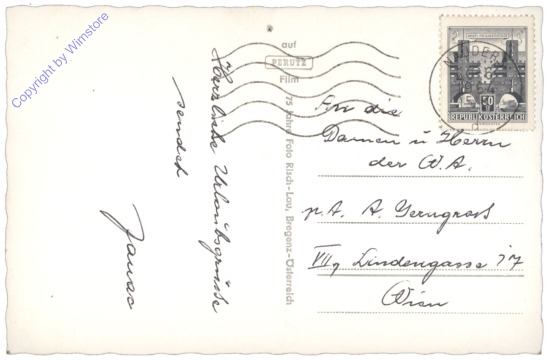 Copyright by Wimstore
Herzliche Urlaubsgrüsse
sendet
auf
PERUTZ
Film
75 Jahre Foto Risch-Lau, Bregenz-Österreich
REPUBLIK ÖSTERREICH
An die
Damen u Herrn
der W.A.
p.A. A. Gerngross
VII, Lindengasse 17
Wien